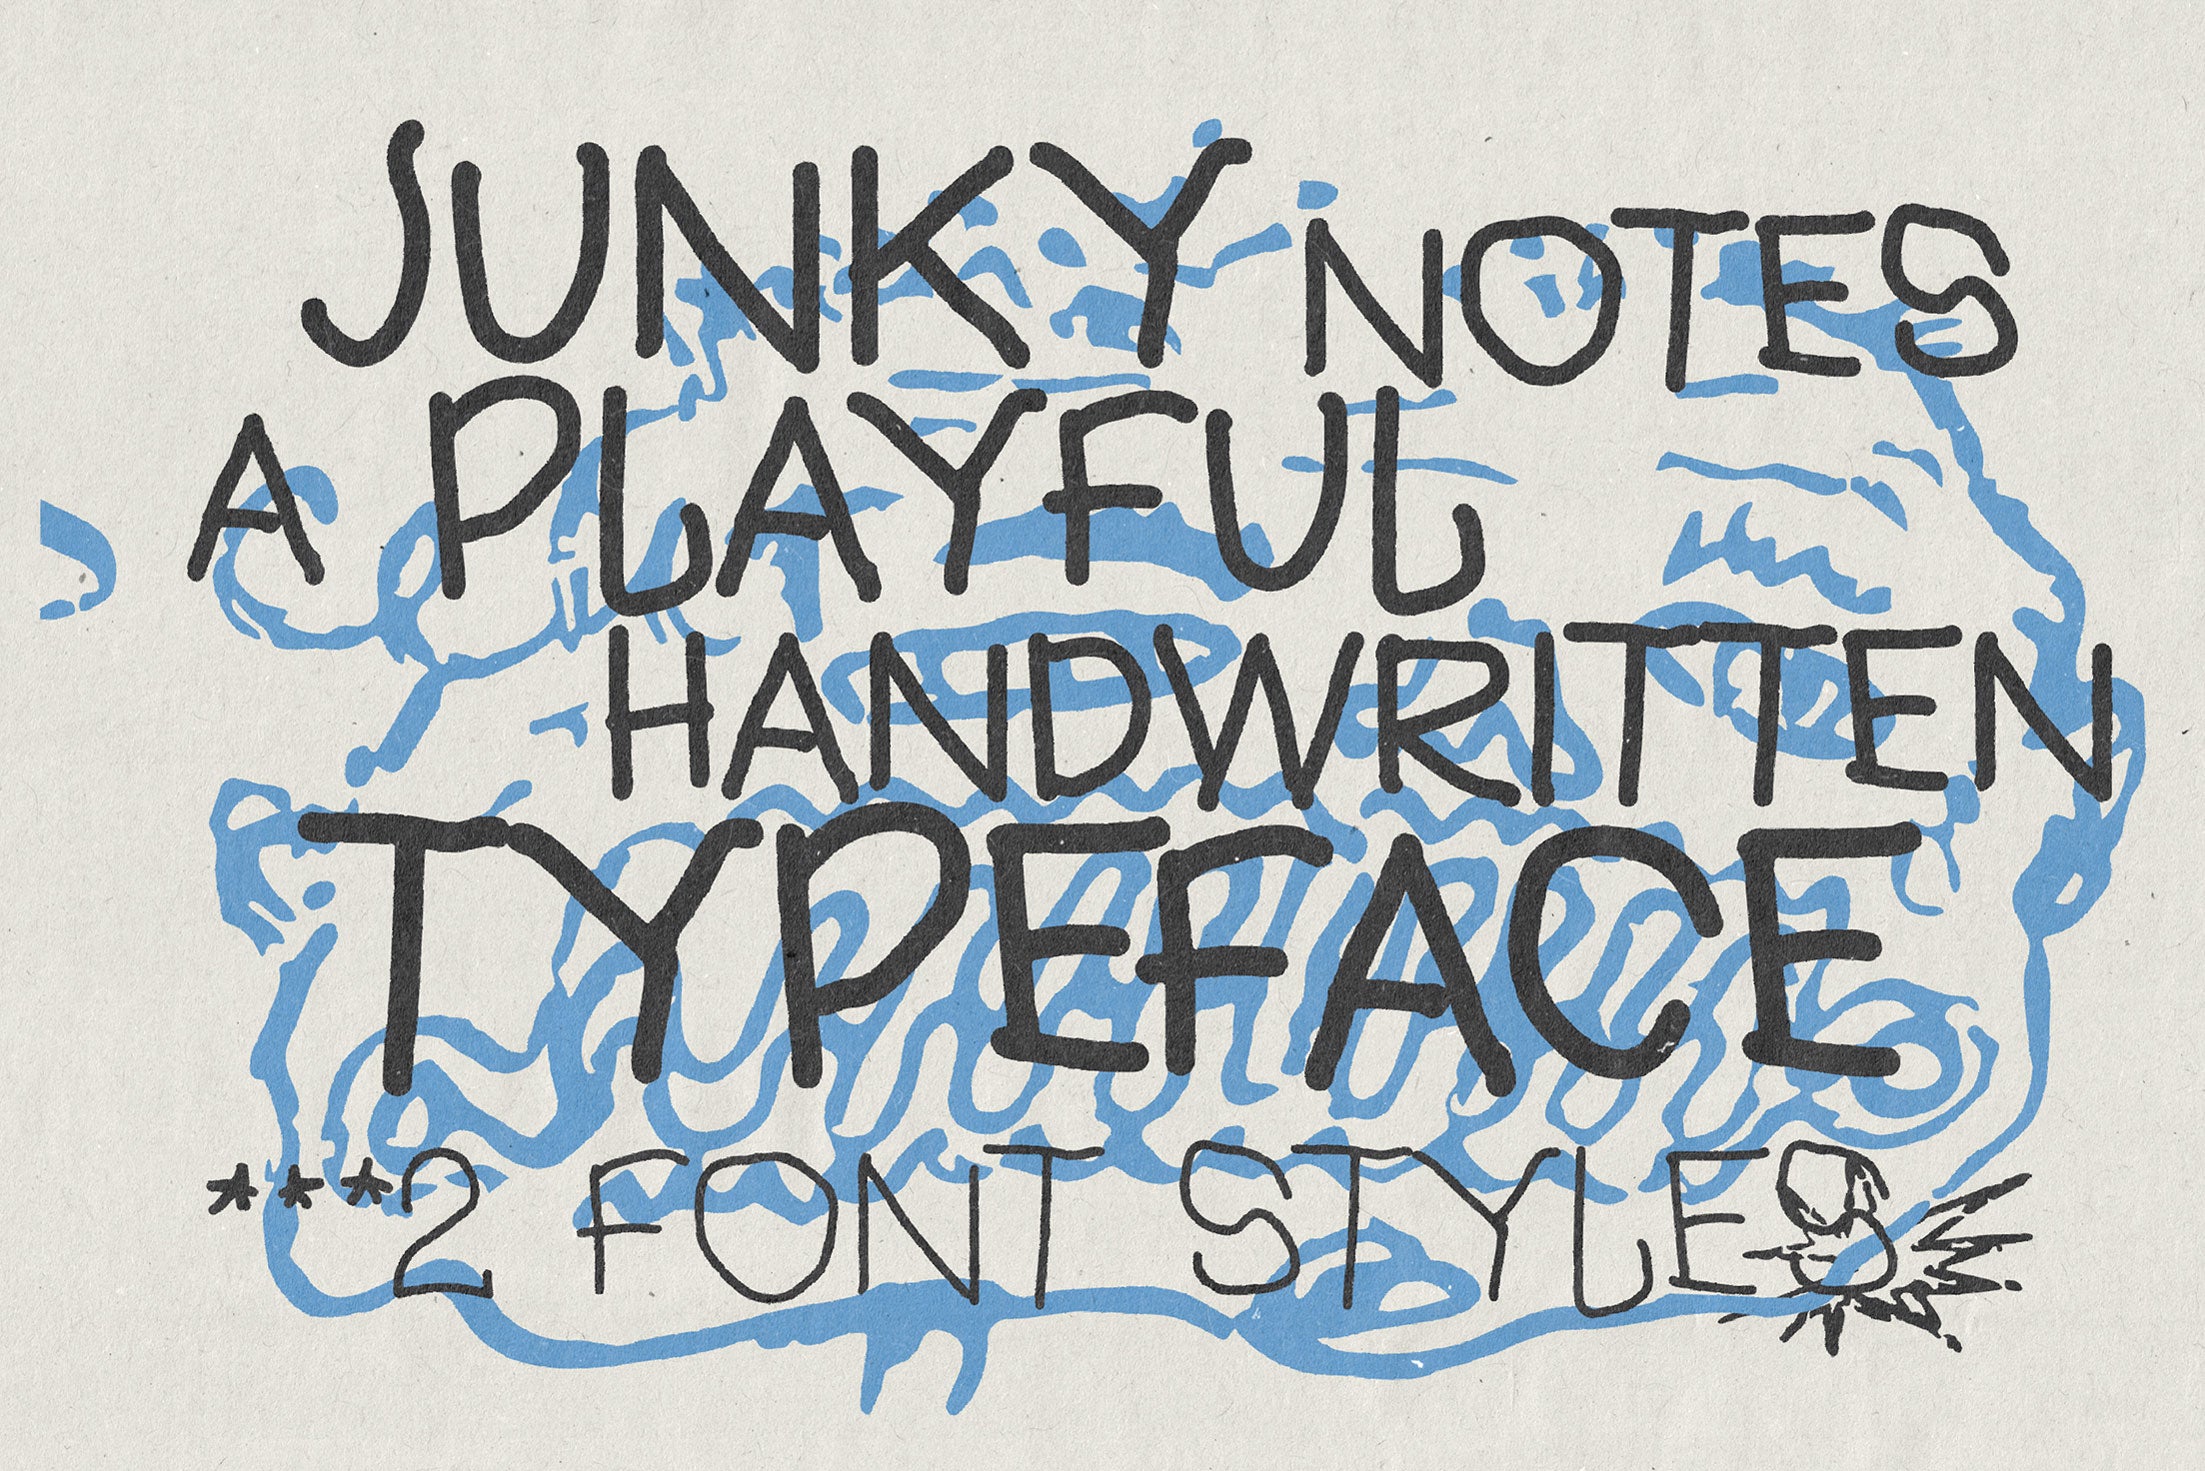 JUNKY NOTES
A PLAYFUL
HANDWRITTEN
TYPEFACE
***2 FONT STYLES